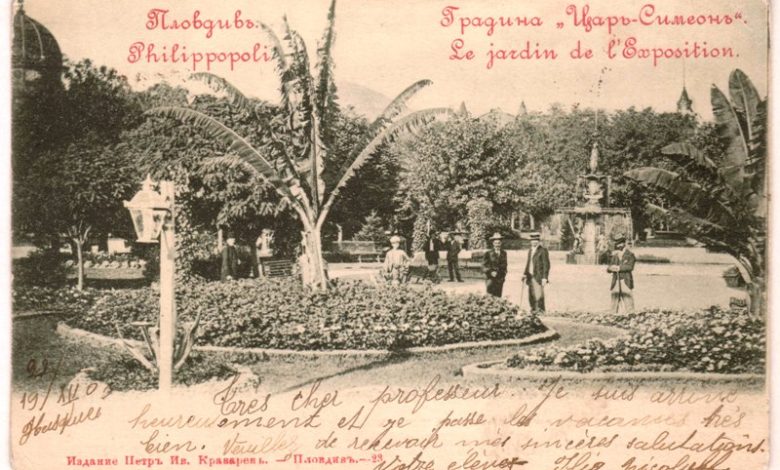 Пловдивъ.
Philippopoli
Градина „Царь-Симеонъ“.
Le jardin de l'Exposition.
19/XII
Très cher professeur. Je suis arrivé
heureusement et je passe les vacances très
bien. Veuillez de recevoir mes sincères salutations.
Votre élève
Издание Петръ Ив. Краваревъ. — Пловдивъ. — 23.